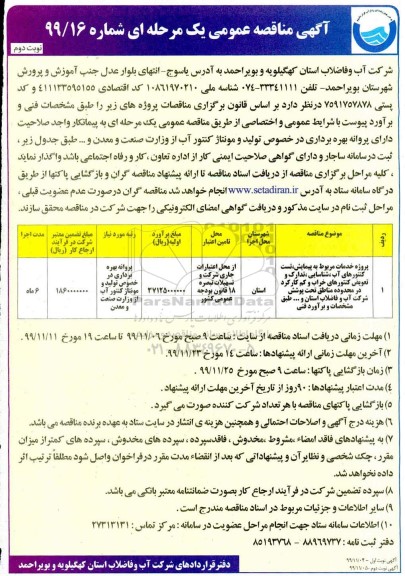 آگهی مناقصه عمومی یک مرحله ای شماره ۹۹/۱۶
نوبت دوم
شرکت آب وفاضلاب استان کهگیلویه و بویراحمد به آدرس یاسوج-انتهای بلوار عدل جنب آموزش و پرورش
شهرستان بویراحمد- تلفن ۳۳۳۴۱۱۱۱-۰۷۴ شناسه ملی ۱۰۸۶۱۹۷۰۲۱۰ کد اقتصادی ۴۱۱۱۳۳۵۹۰۱۵۵ و کد
پستی ۷۵۹۱۷۵۷۸۷۸ درنظر دارد بر اساس قانون برگزاری مناقصات پروژه های زیر را طبق مشخصات فنی و
برآورد پیوست با شرایط عمومی و اختصاصی از طریق مناقصه عمومی یک مرحله ای به پیمانکار واجد صلاحیت
دارای پروانه بهره برداری در خصوص تولید و مونتاژ کنتور آب از وزارت صنعت و معدن و ... طبق جدول زیر ،
ثبت درسامانه ساجار و دارای گواهی صلاحیت ایمنی کار از اداره تعاون ،کار و رفاه اجتماعی باشد واگذار نماید
، کلیه مراحل برگزاری مناقصه از دریافت اسناد مناقصه تا ارائه پیشنهاد مناقصه گران و بازگشایی پاکتها از طریق
درگاه سامانه ستاد به آدرس www.setadiran.ir انجام خواهد شد مناقصه گران درصورت عدم عضویت قبلی ،
مراحل ثبت نام در سایت مذکور و دریافت گواهی امضای الکترونیکی را جهت شرکت در مناقصه محقق سازند.
ردیف
موضوع مناقصه
شهرستان محل اجرا
محل تامین اعتبار
مبلغ برآورد اولیه (ریال)
رشته مورد نیاز
مبلغ تضمین معتبر شرکت در فرآیند ارجاع کار (ریال)
مدت اجرا
۱
پروژه خدمات مربوط به پیمایش،تست
کنتورهای آب ،شناسایی ،تدارک و
تعویض کنتورهای خراب و کم کارکرد
در محدوده مناطق تحت پوشش
شرکت آب و فاضلاب استان و ... طبق
مشخصات و برآورد فنی
استان
از محل اعتبارات
جاری شرکت و
تسهیلات تبصره
۱۸ قانون بودجه
عمومی کشور
۳۷۱۲۵۰۰۰۰۰۰
پروانه بهره
برداری در
خصوص تولید و
مونتاژ کنتور آب
از وزارت صنعت
و معدن
۱۸۶۰۰۰۰۰۰۰
۶ ماه
۱) مهلت زمانی دریافت اسناد مناقصه از سایت : ساعت ۹ صبح مورخ ۹۹/۱۱/۰۶ تا ساعت ۱۹ مورخ ۹۹/۱۱/۱۱ .
۲) آخرین مهلت زمانی ارائه پیشنهادها : ساعت ۱۴ مورخ ۹۹/۱۱/۲۳
۳) زمان بازگشایی پاکتها : ساعت ۹ صبح مورخ ۹۹/۱۱/۲۵ .
۴) مدت اعتبار پیشنهادها : ۹۰روز از تاریخ آخرین مهلت ارائه پیشنهاد .
۵) بازگشایی پاکتهای مناقصه با هر تعداد شرکت کننده صورت می گیرد .
۶) هزینه درج آگهی و اصلاحات احتمالی و همچنین هزینه ی انتشار در سایت ستاد به عهده برنده مناقصه می باشد.
۷) به پیشنهادهای فاقد امضاء ،مشروط ،مخدوش ، فاقدسپرده ، سپرده های مخدوش ، سپرده های کمتر از میزان
مقرر ، چک شخصی و نظایر آن و پیشنهاداتی که بعد از انقضاء مدت مقرر درفراخوان واصل شود مطلقا ترتیب اثر
داده نخواهد شد.
۸) سپرده تضمین شرکت در فرآیند ارجاع کار بصورت ضمانتنامه معتبر بانکی می باشد.
۹) سایر اطلاعات و جزئیات مربوط در اسناد مناقصه مندرج است .
۱۰) اطلاعات سامانه ستاد جهت انجام مراحل عضویت در سامانه : مرکز تماس : ۲۷۳۱۳۱۳۱
دفتر ثبت نامه : ۸۸۹۶۹۷۳۷ – ۸۵۱۹۳۷۶۸
آگهی نوبت اول - ۹۹/۱۱/۰۴
آگهی نوبت دوم - ۹۹/۱۱/۰۵
دفتر قراردادهای شرکت آب وفاضلاب استان کهگیلویه و بویراحمد